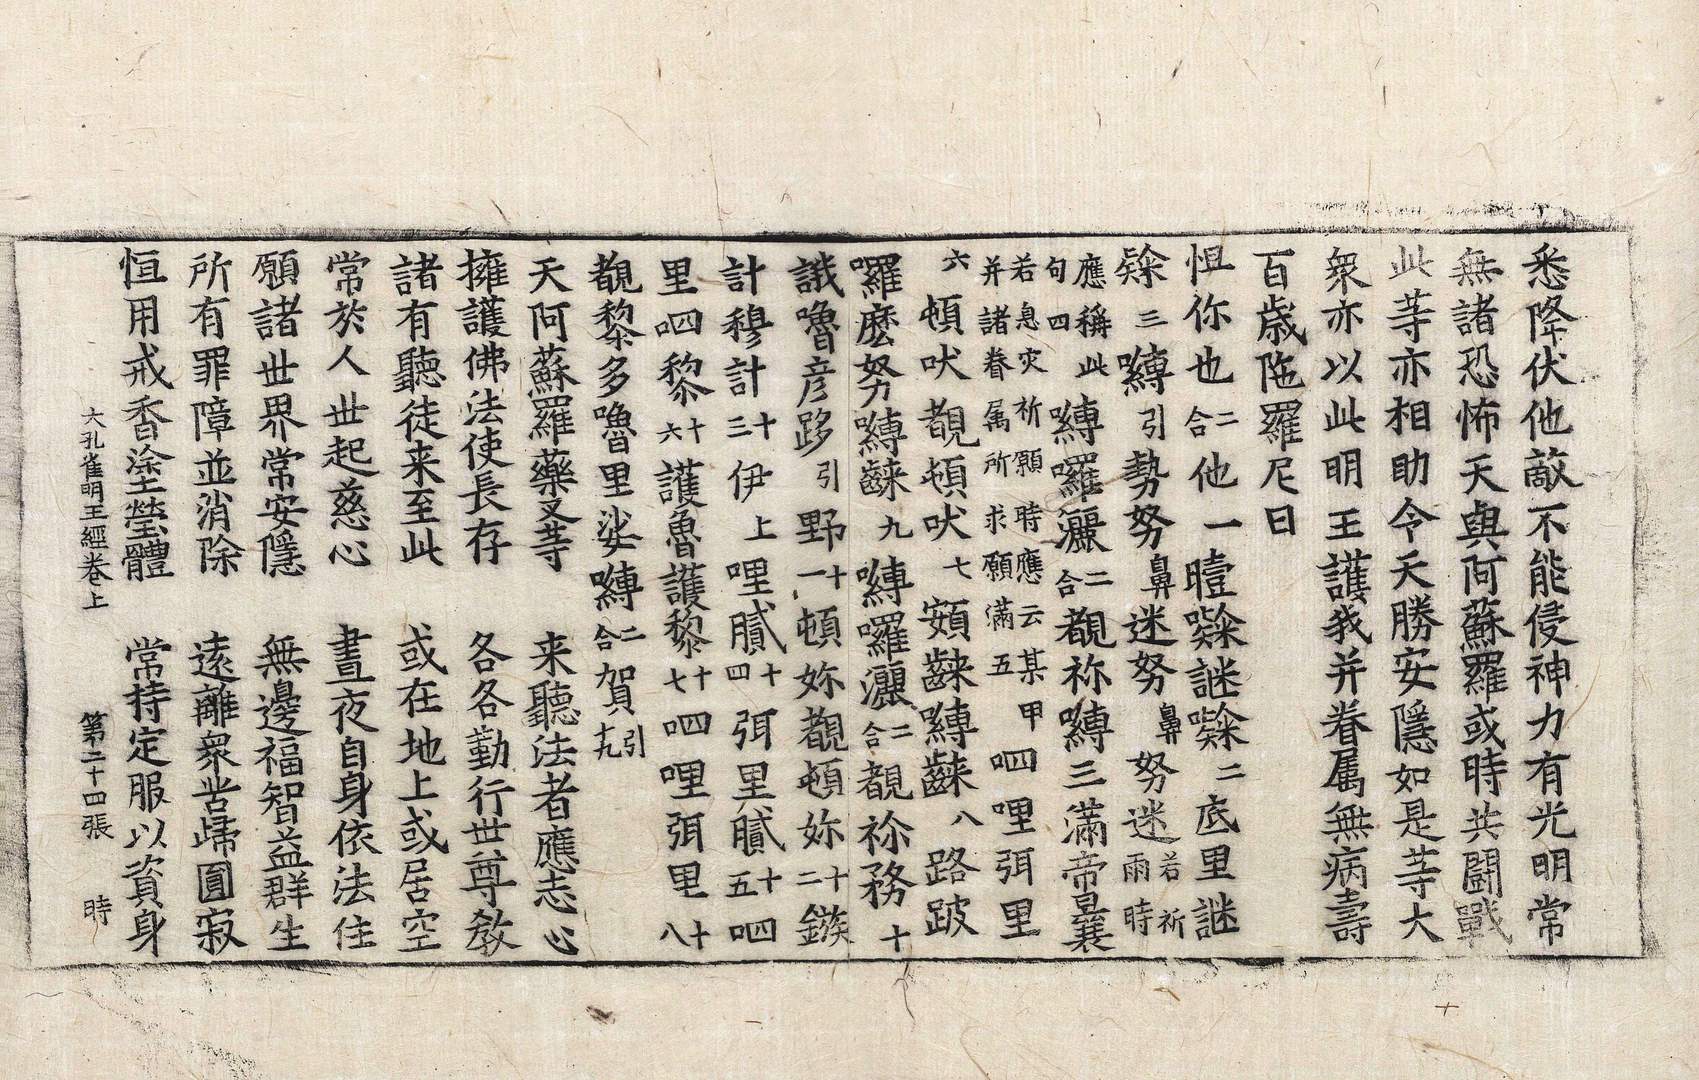 悉降伏他敵不能侵神力有光明常
無諸恐怖天與阿蘇羅或時共鬪戰
此等亦相助令天勝安隱如是等大
衆亦以此明王護我并眷属無病壽
百歳陁羅尼曰
怛你也二合他一曀㘑謎㘑二底里謎
㘑三嚩引勢努鼻迷努鼻努迷若祈雨時
應稱此句四嚩囉灑二合覩祢嚩三滿帝曩
若息灾祈願時應云某甲并諸眷属所求願滿五呬哩弭里
六頓吠覩頓吠七頞䶩嚩䶩八路跛
囉麽努嚩䶩九嚩囉灑二合覩祢務十
誐嚕彦跢引野十一頓妳覩頓妳十二鏃
計穆計十三伊上哩膩十四弭里膩十五呬
里呬黎十六護魯護黎十七呬哩弭里十八
覩黎多嚕里娑嚩二合賀引十九
天阿蘇羅藥叉等 来聽法者應志心
擁護佛法使長存 各各勤行世尊教
諸有聽徒来至此 或在地上或居空
常於人世起慈心 晝夜自身依法住
願諸世界常安隱 無邊福智益群生
所有罪障並消除 遠離衆苦歸圓寂
恒用戒香塗瑩體 常持定服以資身
大孔雀明王經卷上 第二十四張 時